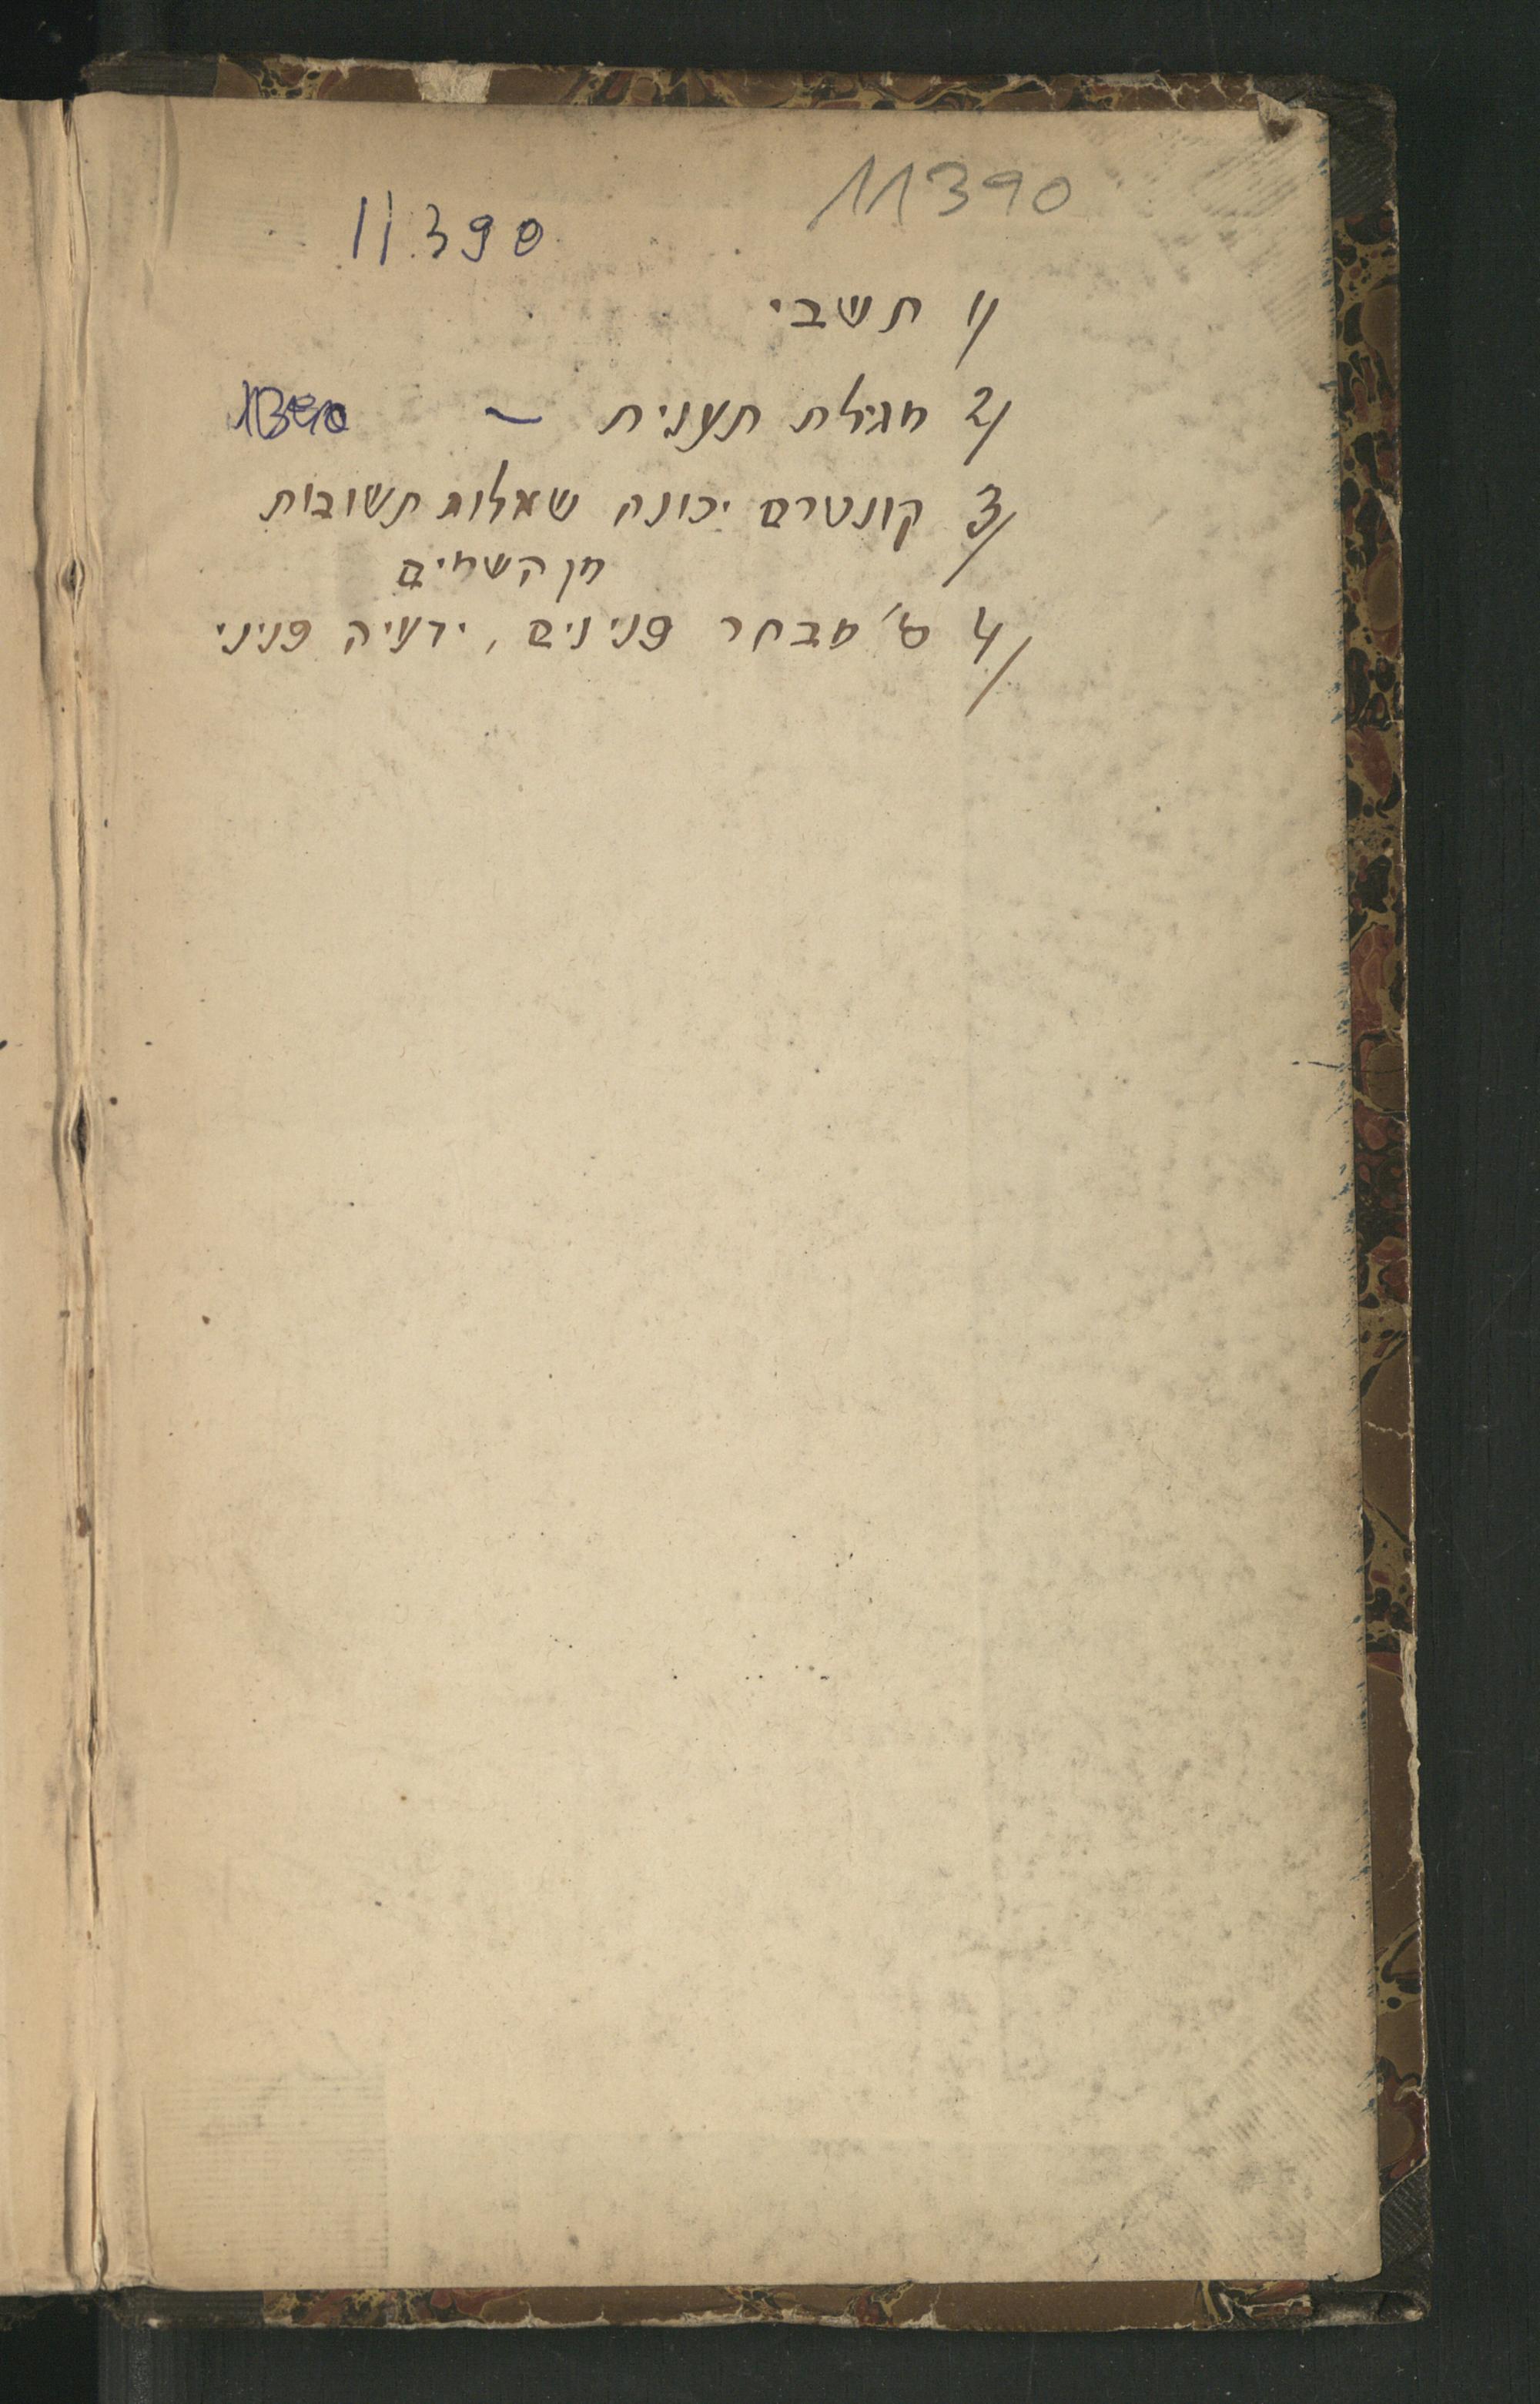 11390
11390
1/ תשבי
2/ מגילת תענית ~
3/ קונטרס יכונה שאלות תשובות
מן השמים
4/ ס' מבחר פנינים, ידעיה פניני